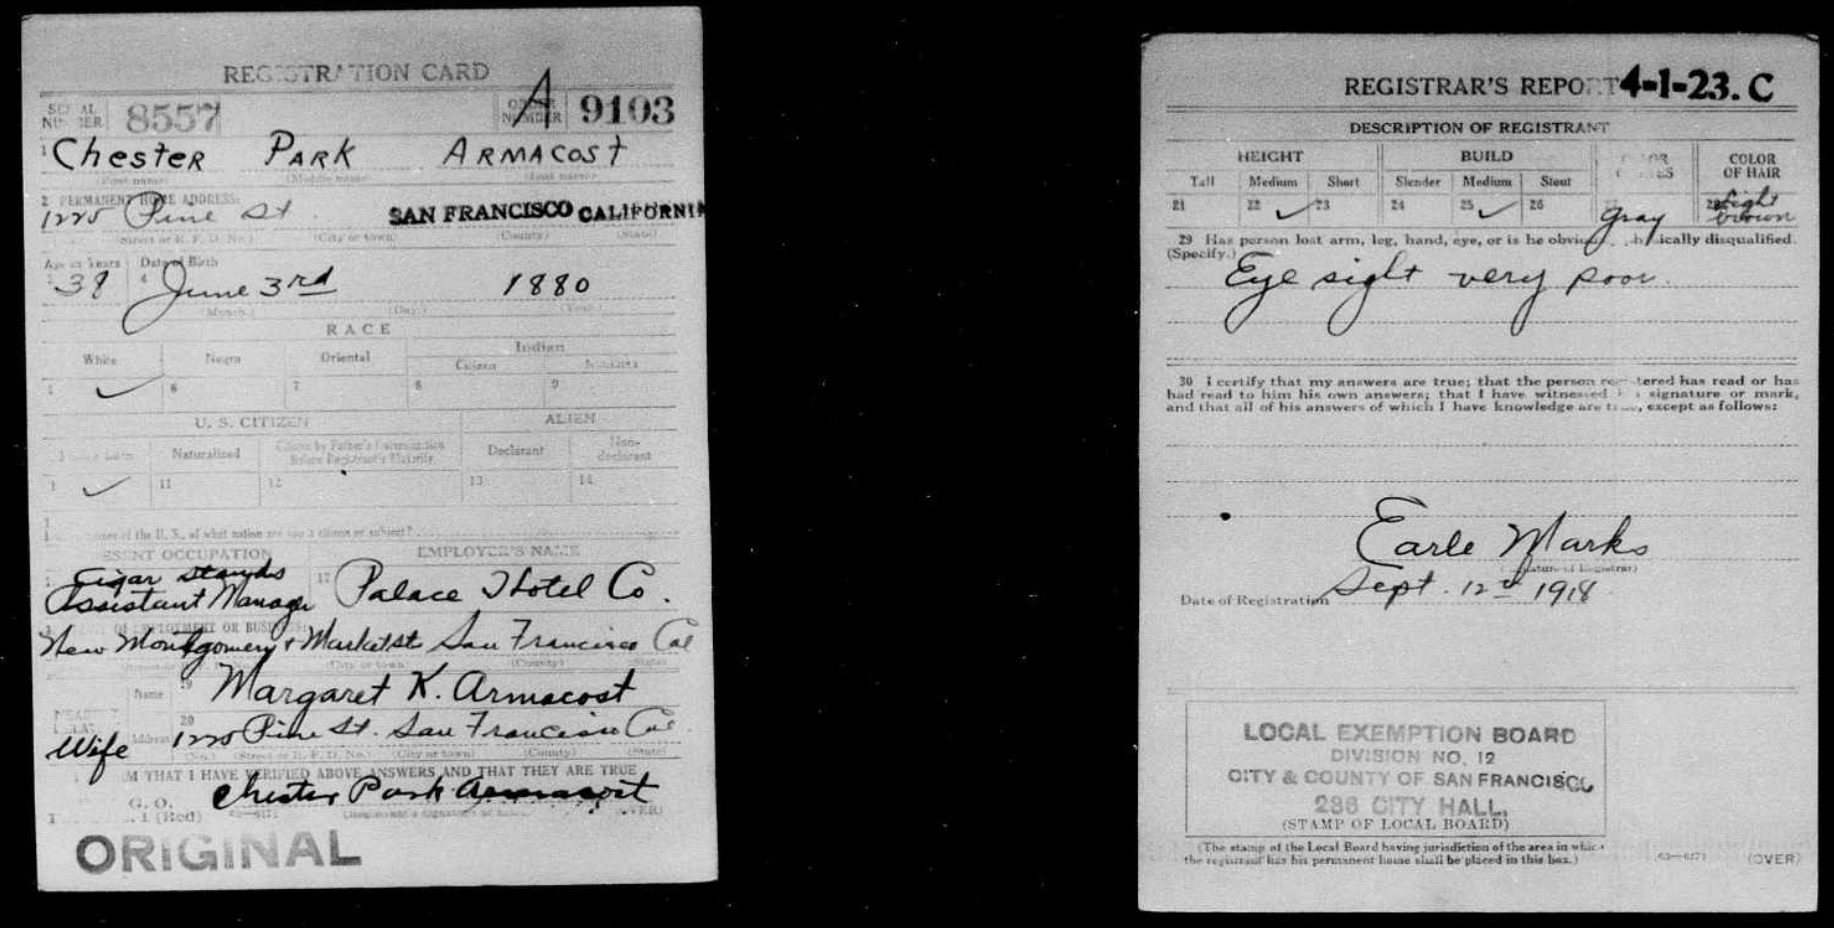 REGISTRATION CARD
SERIAL NUMBER 8557 ORDER NUMBER A 9103
1 Chester PARK ARMACOST
(First name) (Middle name) (Last name)
2 PERMANENT HOME ADDRESS:
1225 Pine St. SAN FRANCISCO CALIFORNIA
(Street or R. F. D. No.) (City or town) (County) (State)
Age in Years Date of Birth
38 4 June 3rd 1880
(Month.) (Day.) (Year.)
RACE
White Negro Oriental Indian
Citizen Noncitizen
✓ 6 7 8 9
U. S. CITIZEN ALIEN
Naturalized Citizen by Father's Naturalization Before Registrant's Majority Declarant Non-declarant
✓ 11 12 13 14
of the U. S., of what nation are you a citizen or subject?
PRESENT OCCUPATION EMPLOYER'S NAME
Cigar stands
Assistant Manager 17 Palace Hotel Co.
OF EMPLOYMENT OR BUSINESS:
New Montgomery & Market st San Francisco Cal
(City or town) (County) (State)
Name 19 Margaret K. Armacost
Address 20 1225 Pine St. San Francisco Cal
Wife
(No.) (Street or R. F. D. No.) (City or town) (County) (State)
M THAT I HAVE VERIFIED ABOVE ANSWERS AND THAT THEY ARE TRUE
Chester Park Armacost
G. O.
1 (Red) (OVER)
ORIGINAL
REGISTRAR'S REPORT 4-1-23. C
DESCRIPTION OF REGISTRANT
HEIGHT BUILD COLOR OF EYES COLOR OF HAIR
Tall Medium Short Slender Medium Stout
21 22 ✓ 23 24 25 ✓ 26 gray light brown
29 Has person lost arm, leg, hand, eye, or is he obviously physically disqualified.
(Specify.)
Eye sight very poor.
30 I certify that my answers are true; that the person registered has read or has
had read to him his own answers; that I have witnessed his signature or mark,
and that all of his answers of which I have knowledge are true, except as follows:
Earle Marks
(Signature of Registrar)
Date of Registration Sept. 12th 1918
LOCAL EXEMPTION BOARD
DIVISION NO. 12
CITY & COUNTY OF SAN FRANCISCO,
286 CITY HALL,
(STAMP OF LOCAL BOARD)
(The stamp of the Local Board having jurisdiction of the area in which
the registrant has his permanent home shall be placed in this box.)
63—6171 (OVER)